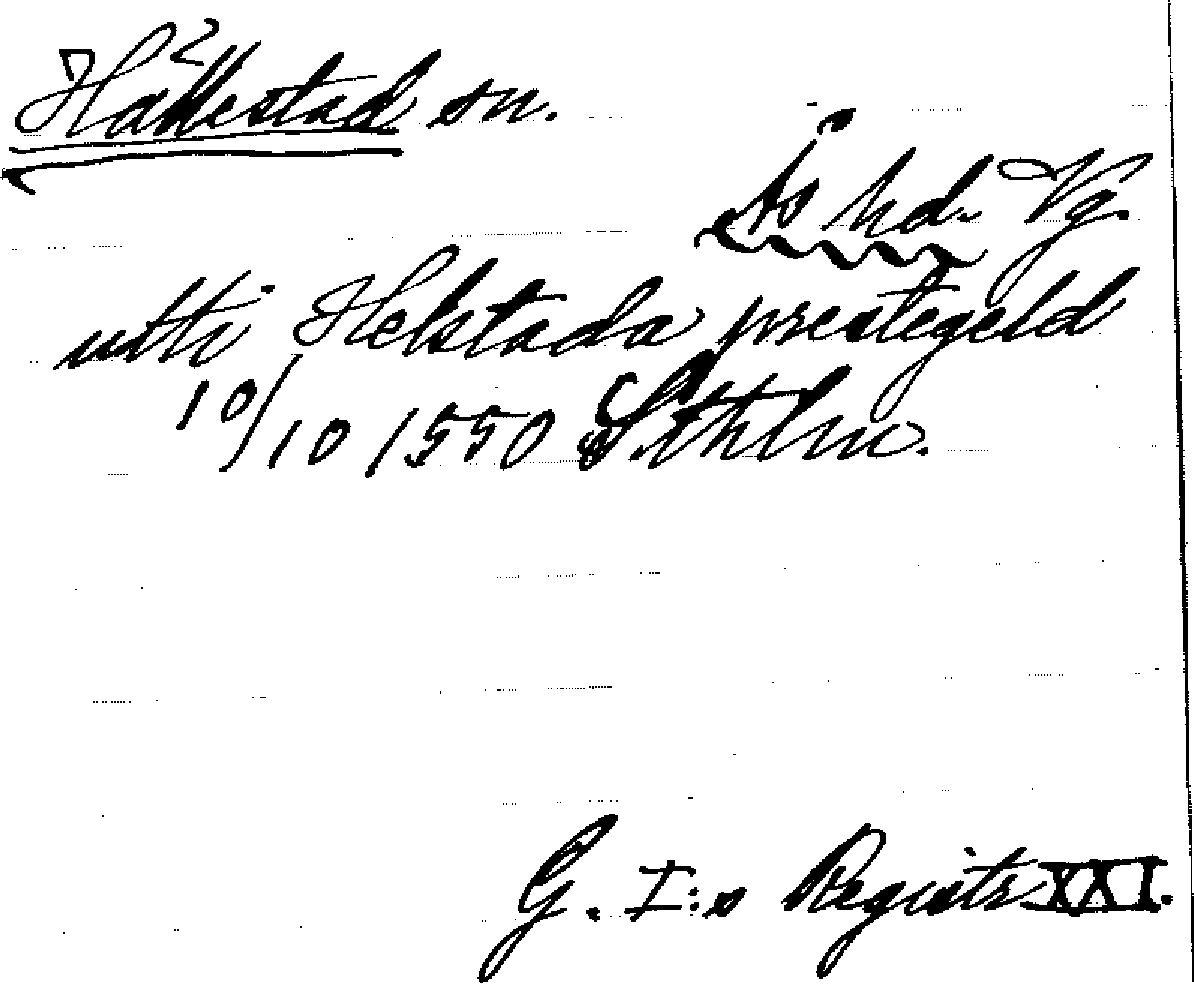 Hällestad sn.
Ås hd. Vg.
utti Helstada prestegeld
10/10 1550 Sthlm.
G. I:s Registr XXI.